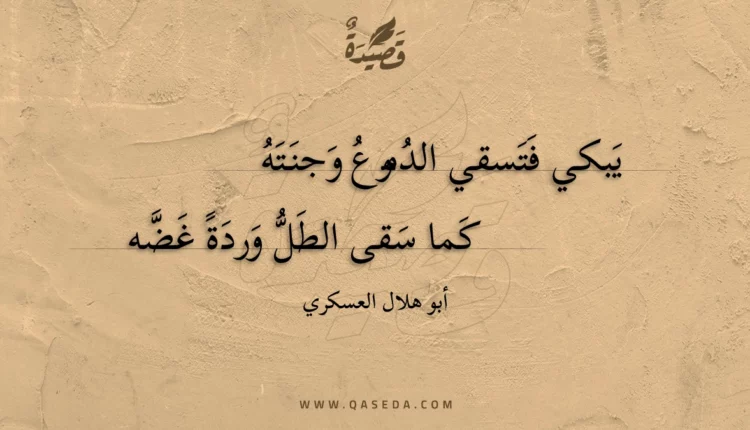 قَصِيدَةٌ
يَبكي فَتَسقي الدُموعُ وَجنَتَهُ
كَما سَقى الطَلُّ وَردَةً غَضَّه
أبو هلال العسكري
WWW.QASEDA.COM